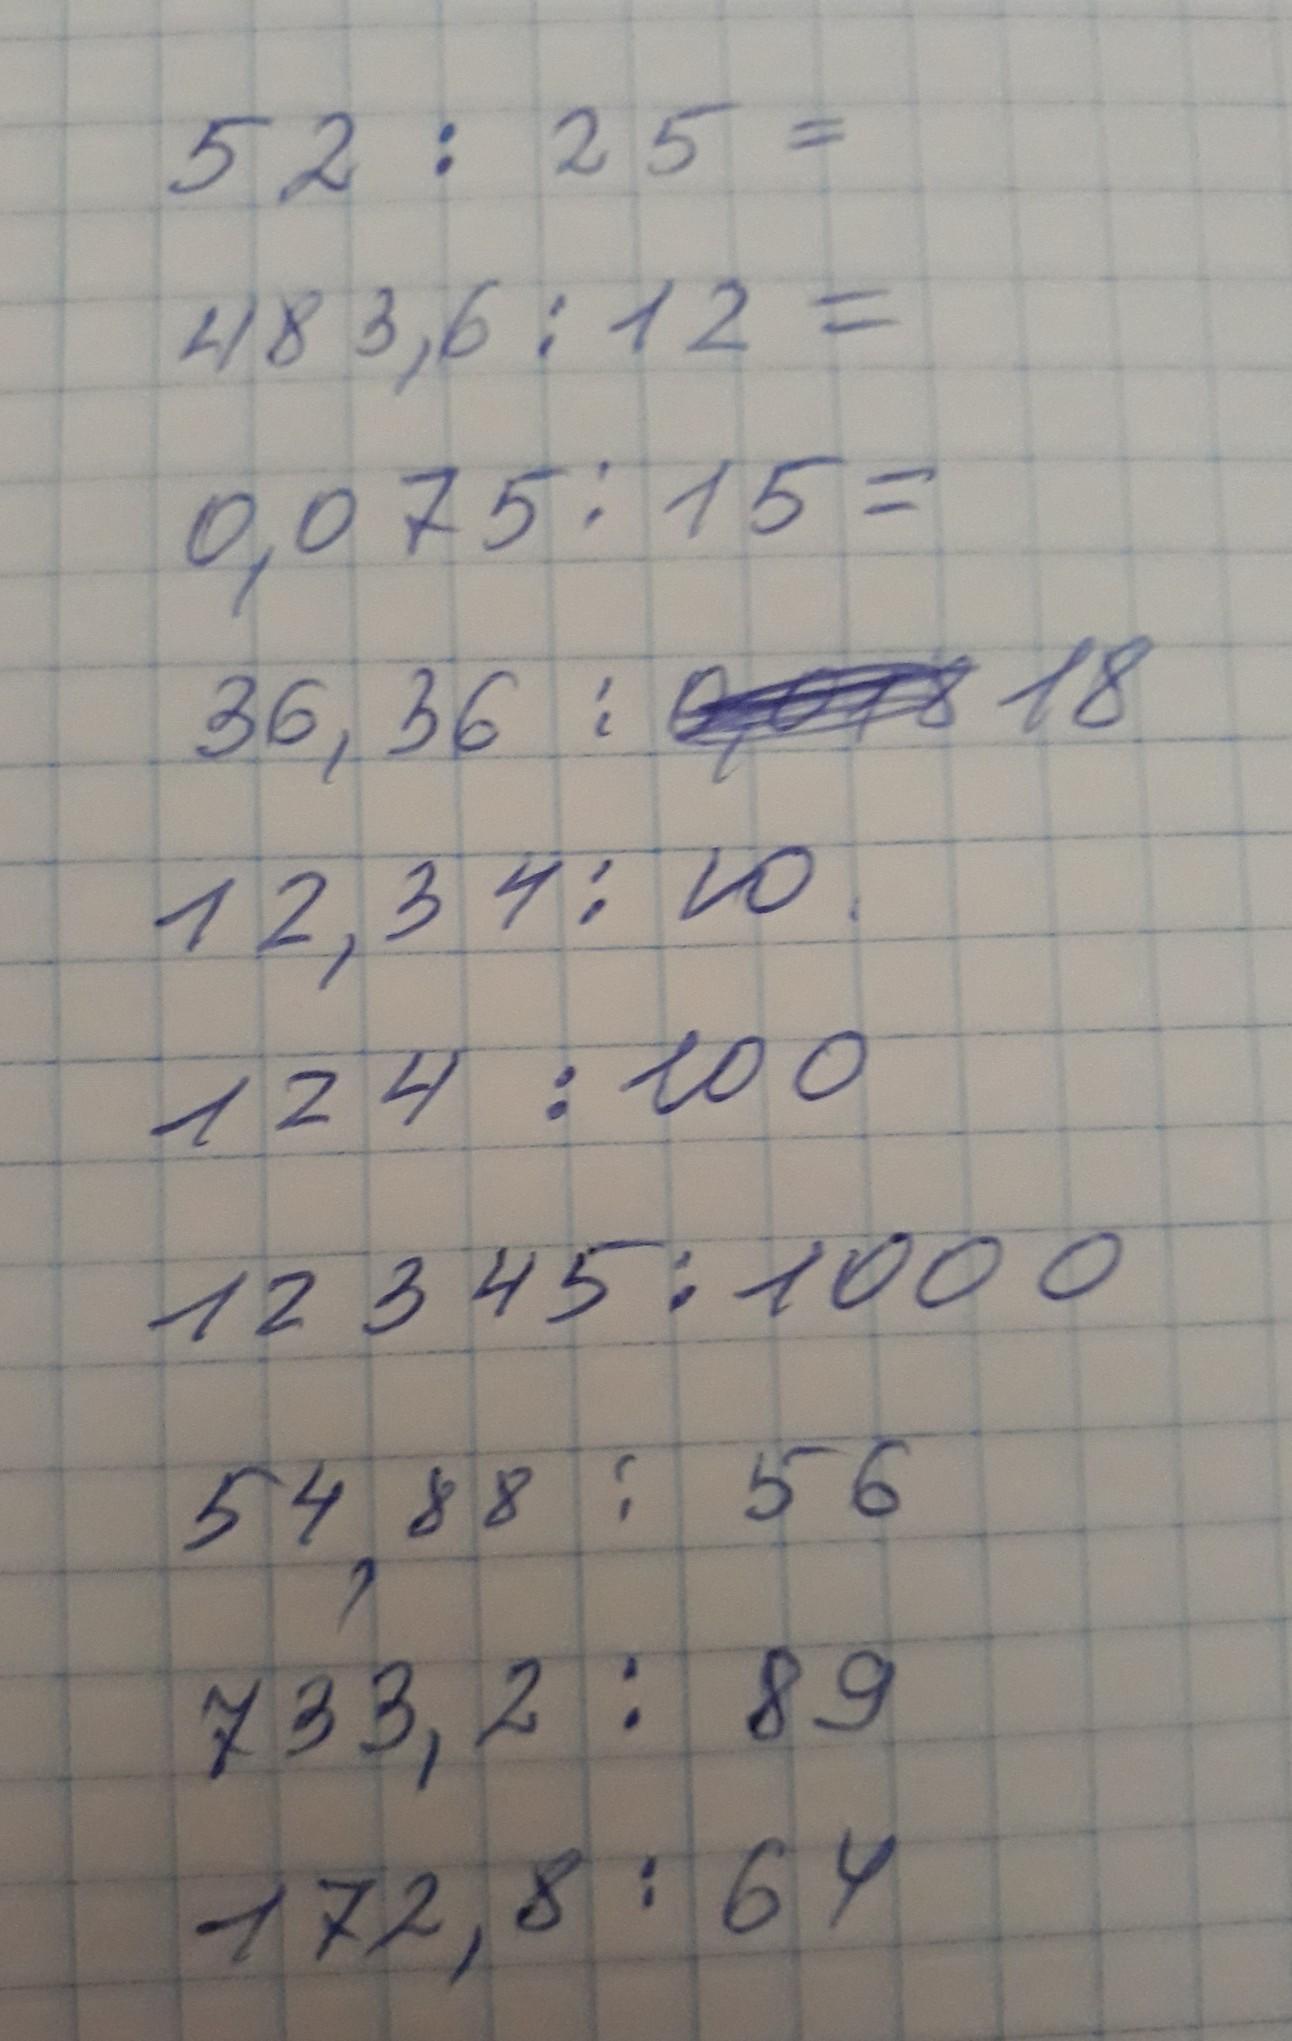 52 : 25 =
483,6 : 12 =
0,075 : 15 =
36,36 : 18
12,34 : 10
124 : 100
12345 : 1000
54,88 : 56
733,2 : 89
172,8 : 64